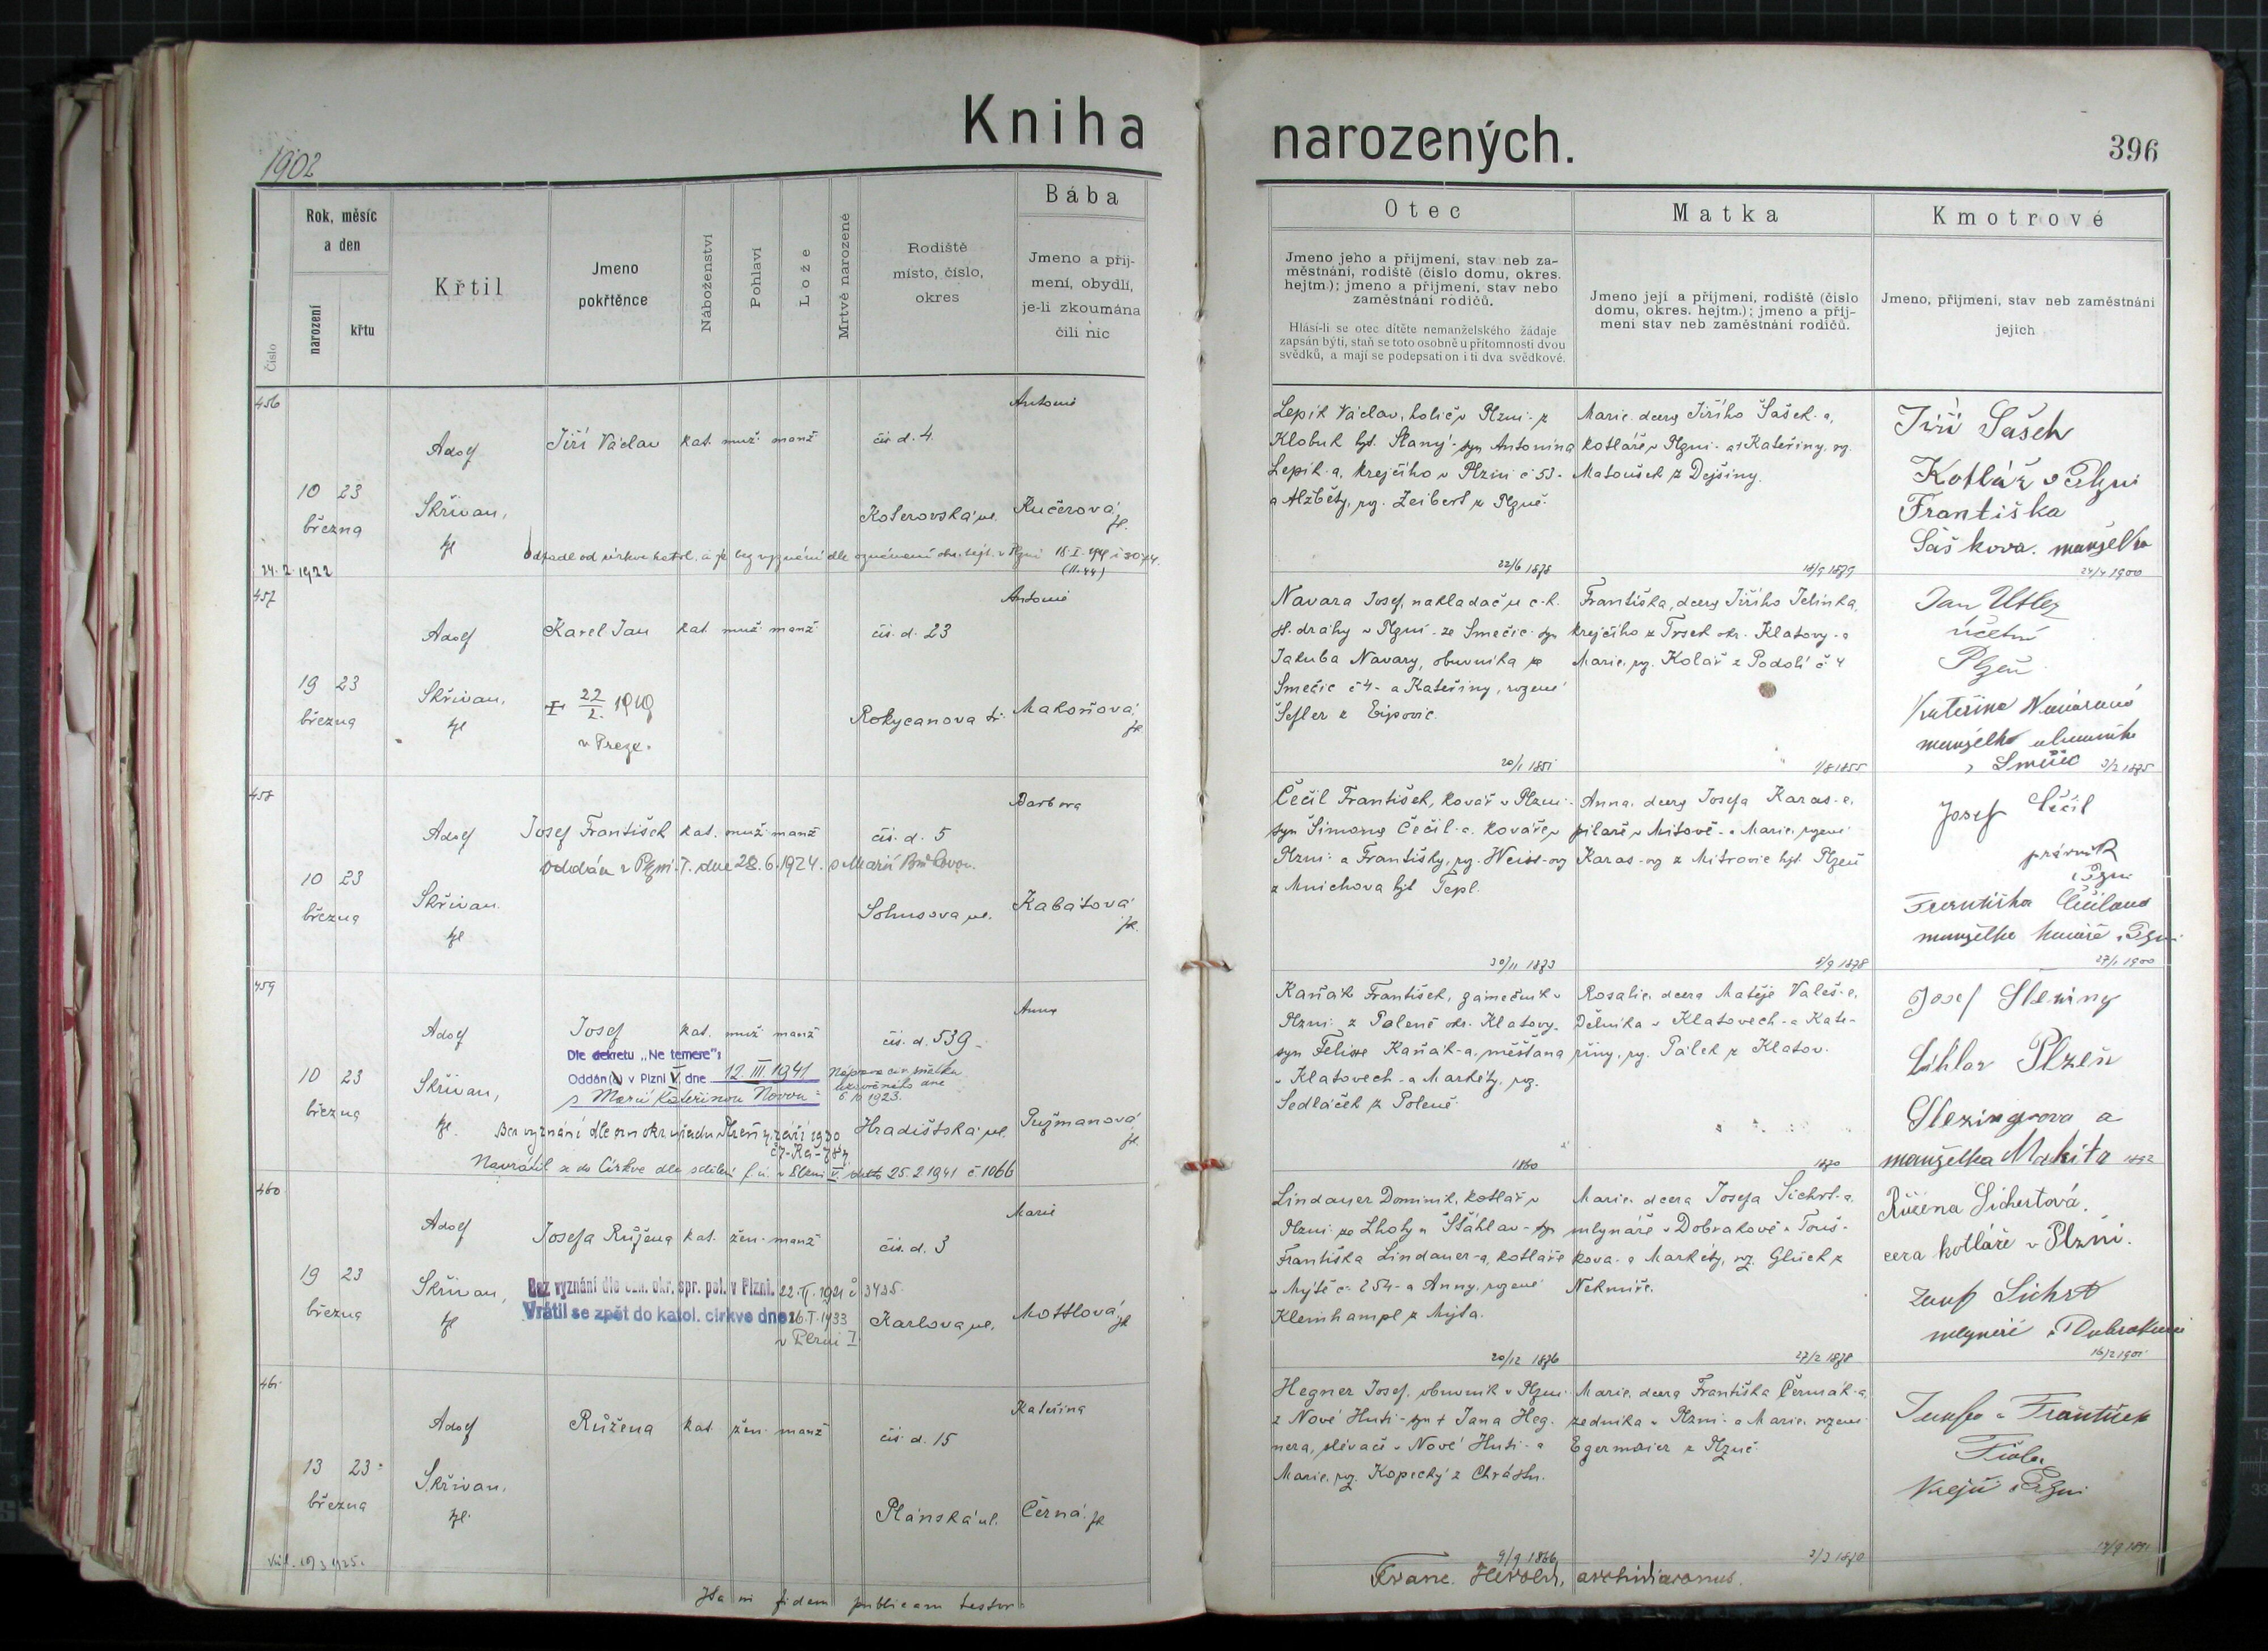 Kniha
narozených.
396
1902
Číslo
Rok, měsíc
a den
narození
křtu
Křtil
Jmeno
pokřtěnce
Náboženství
Pohlaví
Lože
Mrtvě narozené
Rodiště
místo, číslo,
okres
Bába
Jmeno a příj-
mení, obydlí,
je-li zkoumána
čili nic
Otec
Jmeno jeho a příjmení, stav neb za-
městnání, rodiště (číslo domu, okres.
hejtm.); jmeno a příjmení, stav nebo
zaměstnání rodičů.
Hlásí-li se otec dítěte nemanželského žádaje
zapsán býti, staň se toto osobně u přítomnosti dvou
svědků, a mají se podepsati on i ti dva svědkové.
Matka
Jmeno její a příjmení, rodiště (číslo
domu, okres. hejtm.); jmeno a příj-
mení stav neb zaměstnání rodičů.
Kmotrové
Jmeno, příjmení, stav neb zaměstnání
jejich
456
Antonie
Adolf
Jiří Václav kat. muž. manž
čís. d. 4.
10 23
března
Skřivan,
Koterovská ul.
Kučerová
24. 2. 1922
Lepík Václav, holič v Plzni z
Klobuk hjt. Slaný - syn Antonína
Lepík-a, krejčího v Plzni č 53 -
a Alžběty, roz. Zeibert z Plzně.
22/6 1878
Marie. dcera Jiřího Šašek-a,
kotláře v Plzni - a Kateřiny, roz.
Matoušek z Dejšiny.
18/9 1879
Jiří Šašek
Kotlář v Plzni
Františka
Šaškova. manželka
24/4 1900
457
Antonie
Adolf
Karel Jan kat. muž. manž
čís. d. 23
19 23
března
Skřivan,
22/2. 1919
v Praze.
Rokycanova tř.
Makoňová
Navara Josef, nakladač u c. k.
st. dráhy v Plzni - ze Smečic - syn
Jakuba Navary, obuvníka ze
Smečic č 4 - a Kateřiny, rozené
Šefler z Ejpovic.
20/1 1851
Františka, dcera Jiřího Jelínka,
krejčího z Trsek okr. Klatovy - a
Marie, roz. Kolář z Podolí č. 4
1/8 1855
účetní
Plzeň
Kateřina Navárová
manželka obuvníka
458
Barbora
Adolf
Josef František kat. muž. manž
čís. d. 5
Oddán v Plzni I. dne 28. 6. 1924. s Marií
10 23
března
Skřivan.
Kabátová
Čečil František, kovář v Plzni -
syn Šimona Čečil-a, kováře v
Plzni - a Františky, roz. Weiss-ov
z Mnichova hjt Tepl.
30/11 1873
Anna, dcera Josefa Karas-a,
pilaře v Mítově - a Marie, rozené
Karas-ov z Mitrovic hjt. Plzeň
5/9 1878
Josef Čečil
právník
Františka Čečilová
manželka kováře v Plzni
27/1 1900
459
Anna
Adolf
Josef kat. muž. manž
čís. d. 539 -
Dle dekretu „Ne temere":
Oddán(a) v Plzni V. dne 12. III. 1941
s Marií Kateřinou Novou
6. 10 1923.
10 23
března
Skřivan,
Hradištská ul.
Pužmanová
Navrátil se do Církve dle sdělení f. ú. v Plzni V. 25. 2 1941 č. 1066
Kaňák František, zámečník v
Plzni - z Poleně okr. Klatovy -
syn Felixe Kaňák-a, měšťana
v Klatovech - a Markéty, roz.
Sedláček z Poleně.
1860
Rosalie, dcera Matěje Valeš-e,
dělníka v Klatovech - a Kate-
řiny, roz. Pálek z Klatov.
1870
Josef
Plzeň
manželka
1892
460
Marie
Adolf
Josefa Růžena kat. žen. manž
čís. d. 3
19 23
března
Skřivan,
Bez vyznání dle ozn. okr. spr. pol. v Plzni. 22. II. 1921 č 3435
Vrátil se zpět do katol. církve dne 26. I. 1933
v Plzni I.
Karlova ul.
Mottlová
Lindauer Dominik, kotlář v
Plzni ze Lhoty u Šťáhlav - syn
Františka Lindauer-a, kotláře
v Mýtě č. 254 - a Anny, rozené
Kleinhampl z Mýta.
20/12 1876
Marie. dcera Josefa Sichrt-a
mlynáře v Dobrakově u Touš-
kova - a Markéty, roz. Glück z
Nekmíře.
27/2 1878
Růžena Sichertová.
dcera kotláře v Plzni.
Josef Sichrt
16/2 1901
461
Kateřina
Adolf
Růžena kat. žen. manž
čís. d. 15
13 23
března
Skřivan,
Plánská ul.
Černá
Hegner Josef, obuvník v Plzni
z Nové Huti - syn † Jana Heg-
nera, slévače v Nové Huti - a
Marie, roz. Kopecký z Chrástu.
9/9 1866
Marie, dcera Františka Čermák-a,
zedníka v Plzni - a Marie, rozené
Egermaier z Plzně.
Josefa a František
Fiala
Krejčí v Plzni
Ita in fidem publicam testor
Franc. Herold, archidiaconus.